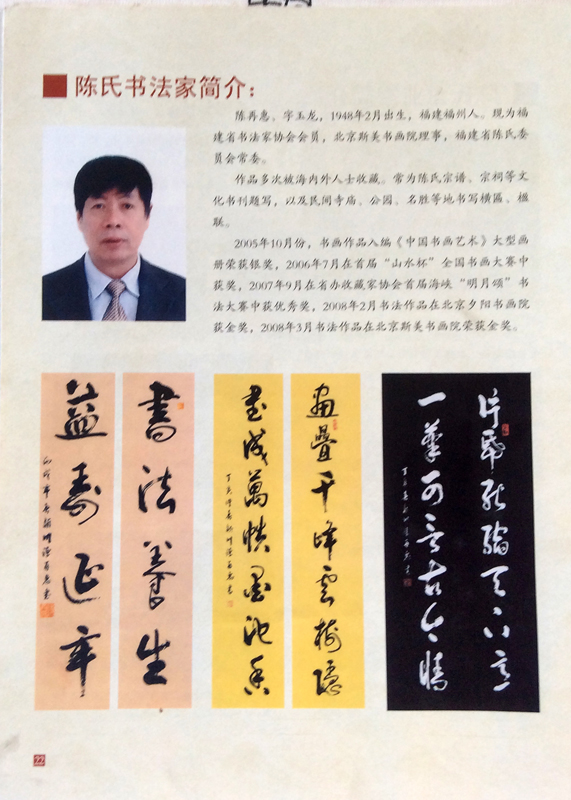 陈氏书法家简介：
陈再惠。字玉龙，1948年2月出生，福建福州人。现为福
建省书法家协会会员，北京斯美书画院理事，福建省陈氏委
员会常委。
作品多次被海内外人士收藏。常为陈氏宗谱、宗祠等文
化书刊题写，以及民间寺庙、公园、名胜等地书写横匾、楹
联。
2005年10月份，书画作品入编《中国书画艺术》大型画
册荣获银奖，2006年7月在首届“山水杯”全国书画大赛中
获奖，2007年9月在省办收藏家协会首届海峡“明月颂”书
法大赛中获优秀奖，2008年2月书法作品在北京夕阳书画院
获金奖，2008年3月书法作品在北京斯美书画院荣获金奖。
書法養生
益壽延年
畫疊千峰雲樹隱
書成萬帙墨池香
片紙能縮天下意
一筆可言古今情
22